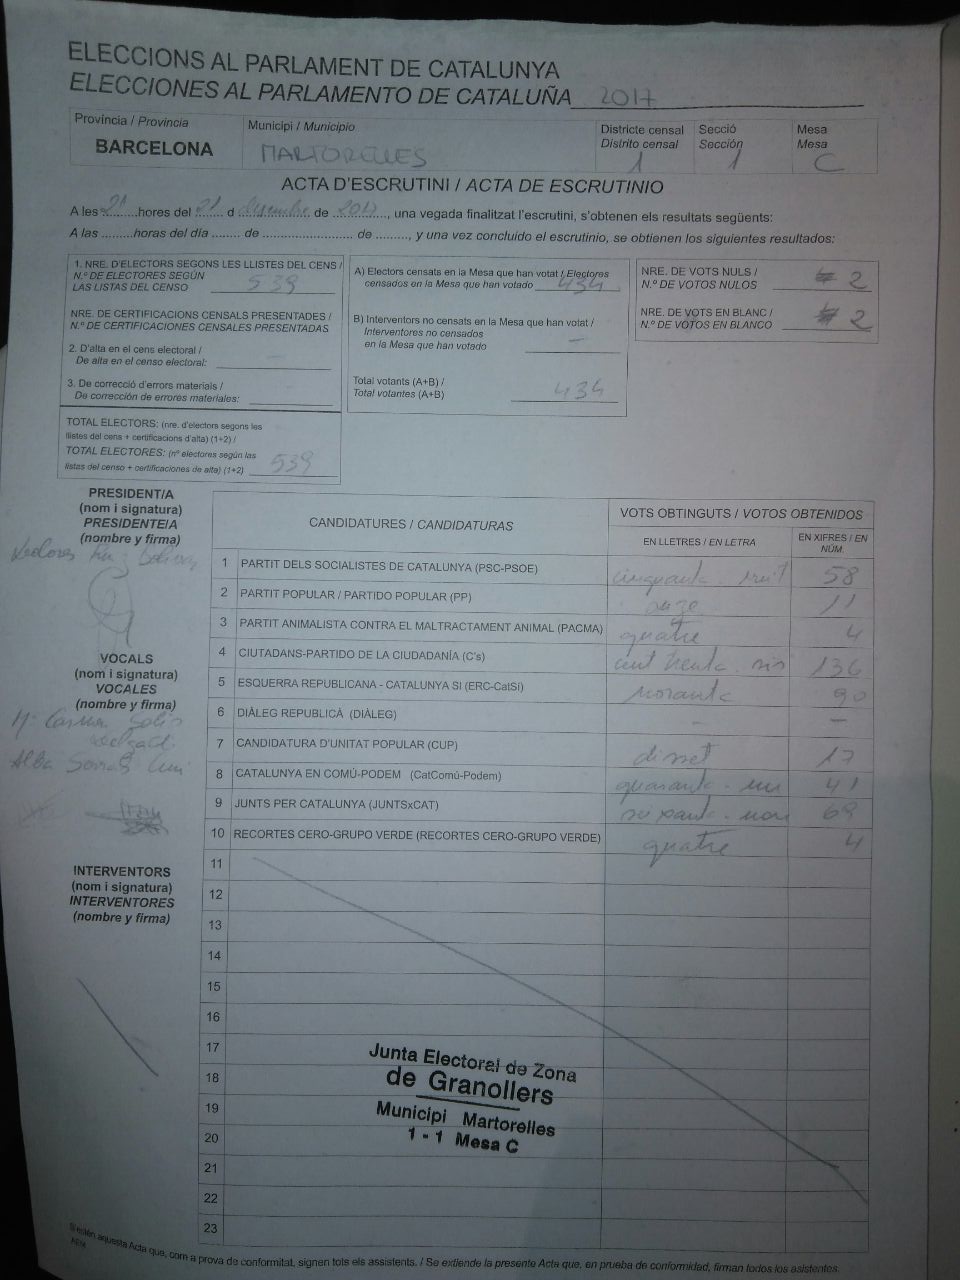 ELECCIONS AL PARLAMENT DE CATALUNYA
ELECCIONES AL PARLAMENTO DE CATALUÑA 2017
Província / Provincia
BARCELONA
Municipi / Municipio
MARTORELLES
Districte censal
Distrito censal
1
Secció
Sección
1
Mesa
Mesa
C
ACTA D'ESCRUTINI / ACTA DE ESCRUTINIO
A les 21 hores del 21 d desembre de 2017, una vegada finalitzat l'escrutini, s'obtenen els resultats següents:
A las .........horas del día ........ de .......................... de .........., y una vez concluido el escrutinio, se obtienen los siguientes resultados:
1. NRE. D'ELECTORS SEGONS LES LLISTES DEL CENS /
N.º DE ELECTORES SEGÚN
LAS LISTAS DEL CENSO 539
NRE. DE CERTIFICACIONS CENSALS PRESENTADES /
N.º DE CERTIFICACIONES CENSALES PRESENTADAS
2. D'alta en el cens electoral /
De alta en el censo electoral: -
3. De correcció d'errors materials /
De corrección de errores materiales:
TOTAL ELECTORS: (nre. d'electors segons les
llistes del cens + certificacions d'alta) (1+2) /
TOTAL ELECTORES: (nº electores según las
listas del censo + certificaciones de alta) (1+2) 539
A) Electors censats en la Mesa que han votat / Electores
censados en la Mesa que han votado 434
B) Interventors no censats en la Mesa que han votat /
Interventores no censados
en la Mesa que han votado -
Total votants (A+B) /
Total votantes (A+B) 434
NRE. DE VOTS NULS /
N.º DE VOTOS NULOS 2
NRE. DE VOTS EN BLANC /
N.º DE VOTOS EN BLANCO 2
PRESIDENT/A
(nom i signatura)
PRESIDENTE/A
(nombre y firma)
VOCALS
(nom i signatura)
VOCALES
(nombre y firma)
Mª Carmen Solis
Alba
INTERVENTORS
(nom i signatura)
INTERVENTORES
(nombre y firma)
CANDIDATURES / CANDIDATURAS
VOTS OBTINGUTS / VOTOS OBTENIDOS
EN LLETRES / EN LETRA
EN XIFRES / EN NÚM.
1 PARTIT DELS SOCIALISTES DE CATALUNYA (PSC-PSOE) cinquanta-vuit 58
2 PARTIT POPULAR / PARTIDO POPULAR (PP) onze 11
3 PARTIT ANIMALISTA CONTRA EL MALTRACTAMENT ANIMAL (PACMA) quatre 4
4 CIUTADANS-PARTIDO DE LA CIUDADANÍA (C's) cent trenta-sis 136
5 ESQUERRA REPUBLICANA - CATALUNYA SI (ERC-CatSí) noranta 90
6 DIÀLEG REPUBLICÀ (DIÀLEG) - -
7 CANDIDATURA D'UNITAT POPULAR (CUP) disset 17
8 CATALUNYA EN COMÚ-PODEM (CatComú-Podem) quaranta-un 41
9 JUNTS PER CATALUNYA (JUNTSxCAT) seixanta-nou 69
10 RECORTES CERO-GRUPO VERDE (RECORTES CERO-GRUPO VERDE) quatre 4
11
12
13
14
15
16
17
18
19
20
21
22
23
Junta Electoral de Zona
de Granollers
Municipi Martorelles
1 - 1 Mesa C
S'estén aquesta Acta que, com a prova de conformitat, signen tots els assistents. / Se extiende la presente Acta que, en prueba de conformidad, firman todos los asistentes.